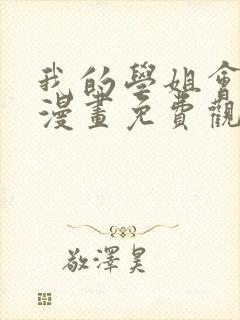 我的學姐會
漫畫免費觀
敬澤昊